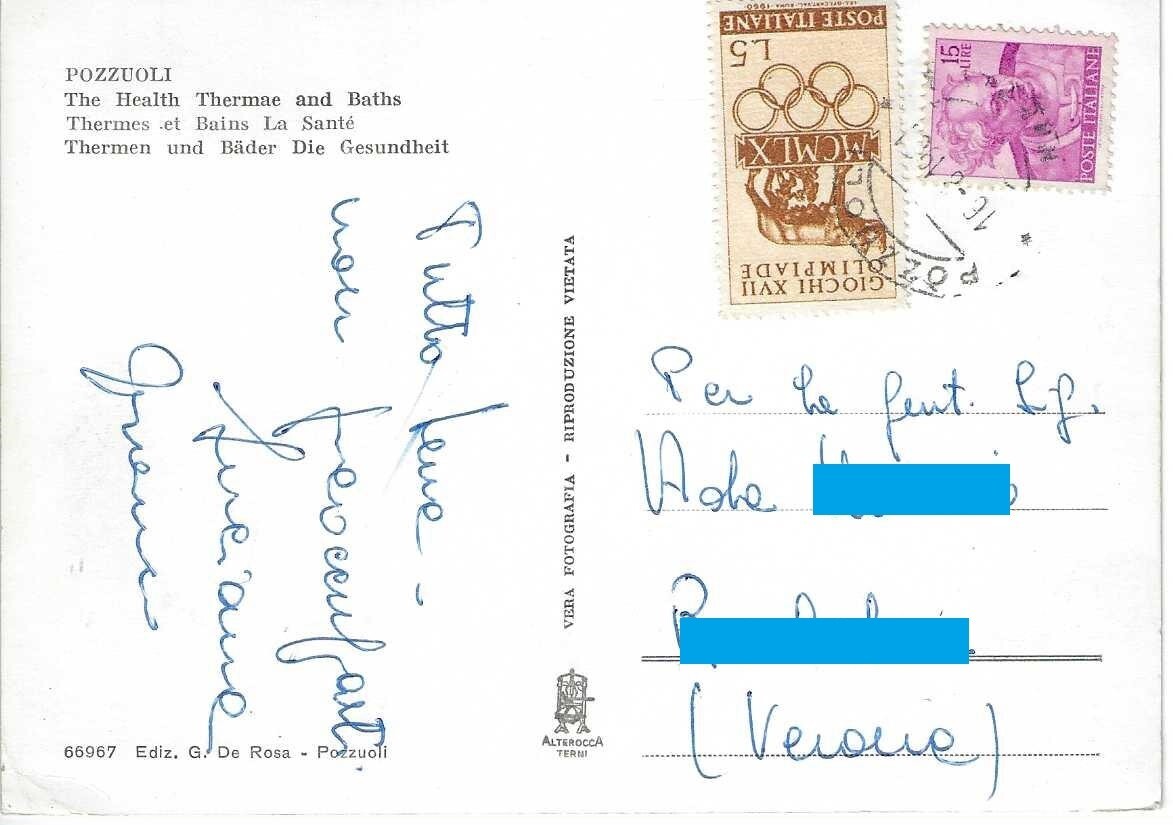 POZZUOLI
The Health Thermae and Baths
Thermes et Bains La Santé
Thermen und Bäder Die Gesundheit
Tutto bene -
non preoccuparti
Luciana
Gianni
66967 Ediz. G. De Rosa - Pozzuoli
VERA FOTOGRAFIA - RIPRODUZIONE VIETATA
ALTEROCCA
TERNI
POSTE ITALIANE
L.5
MCMLX
GIOCHI XVII
OLIMPIADE
15
LIRE
POSTE ITALIANE
POZZUOLI
Per la gent. Sig.
Ada
(Verona)